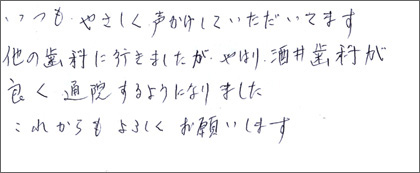 いつも やさしく声かけしていただいてます
他の歯科に行きましたが、やはり、酒井歯科が
良く 通院するようになりました
これからも よろしく お願いします